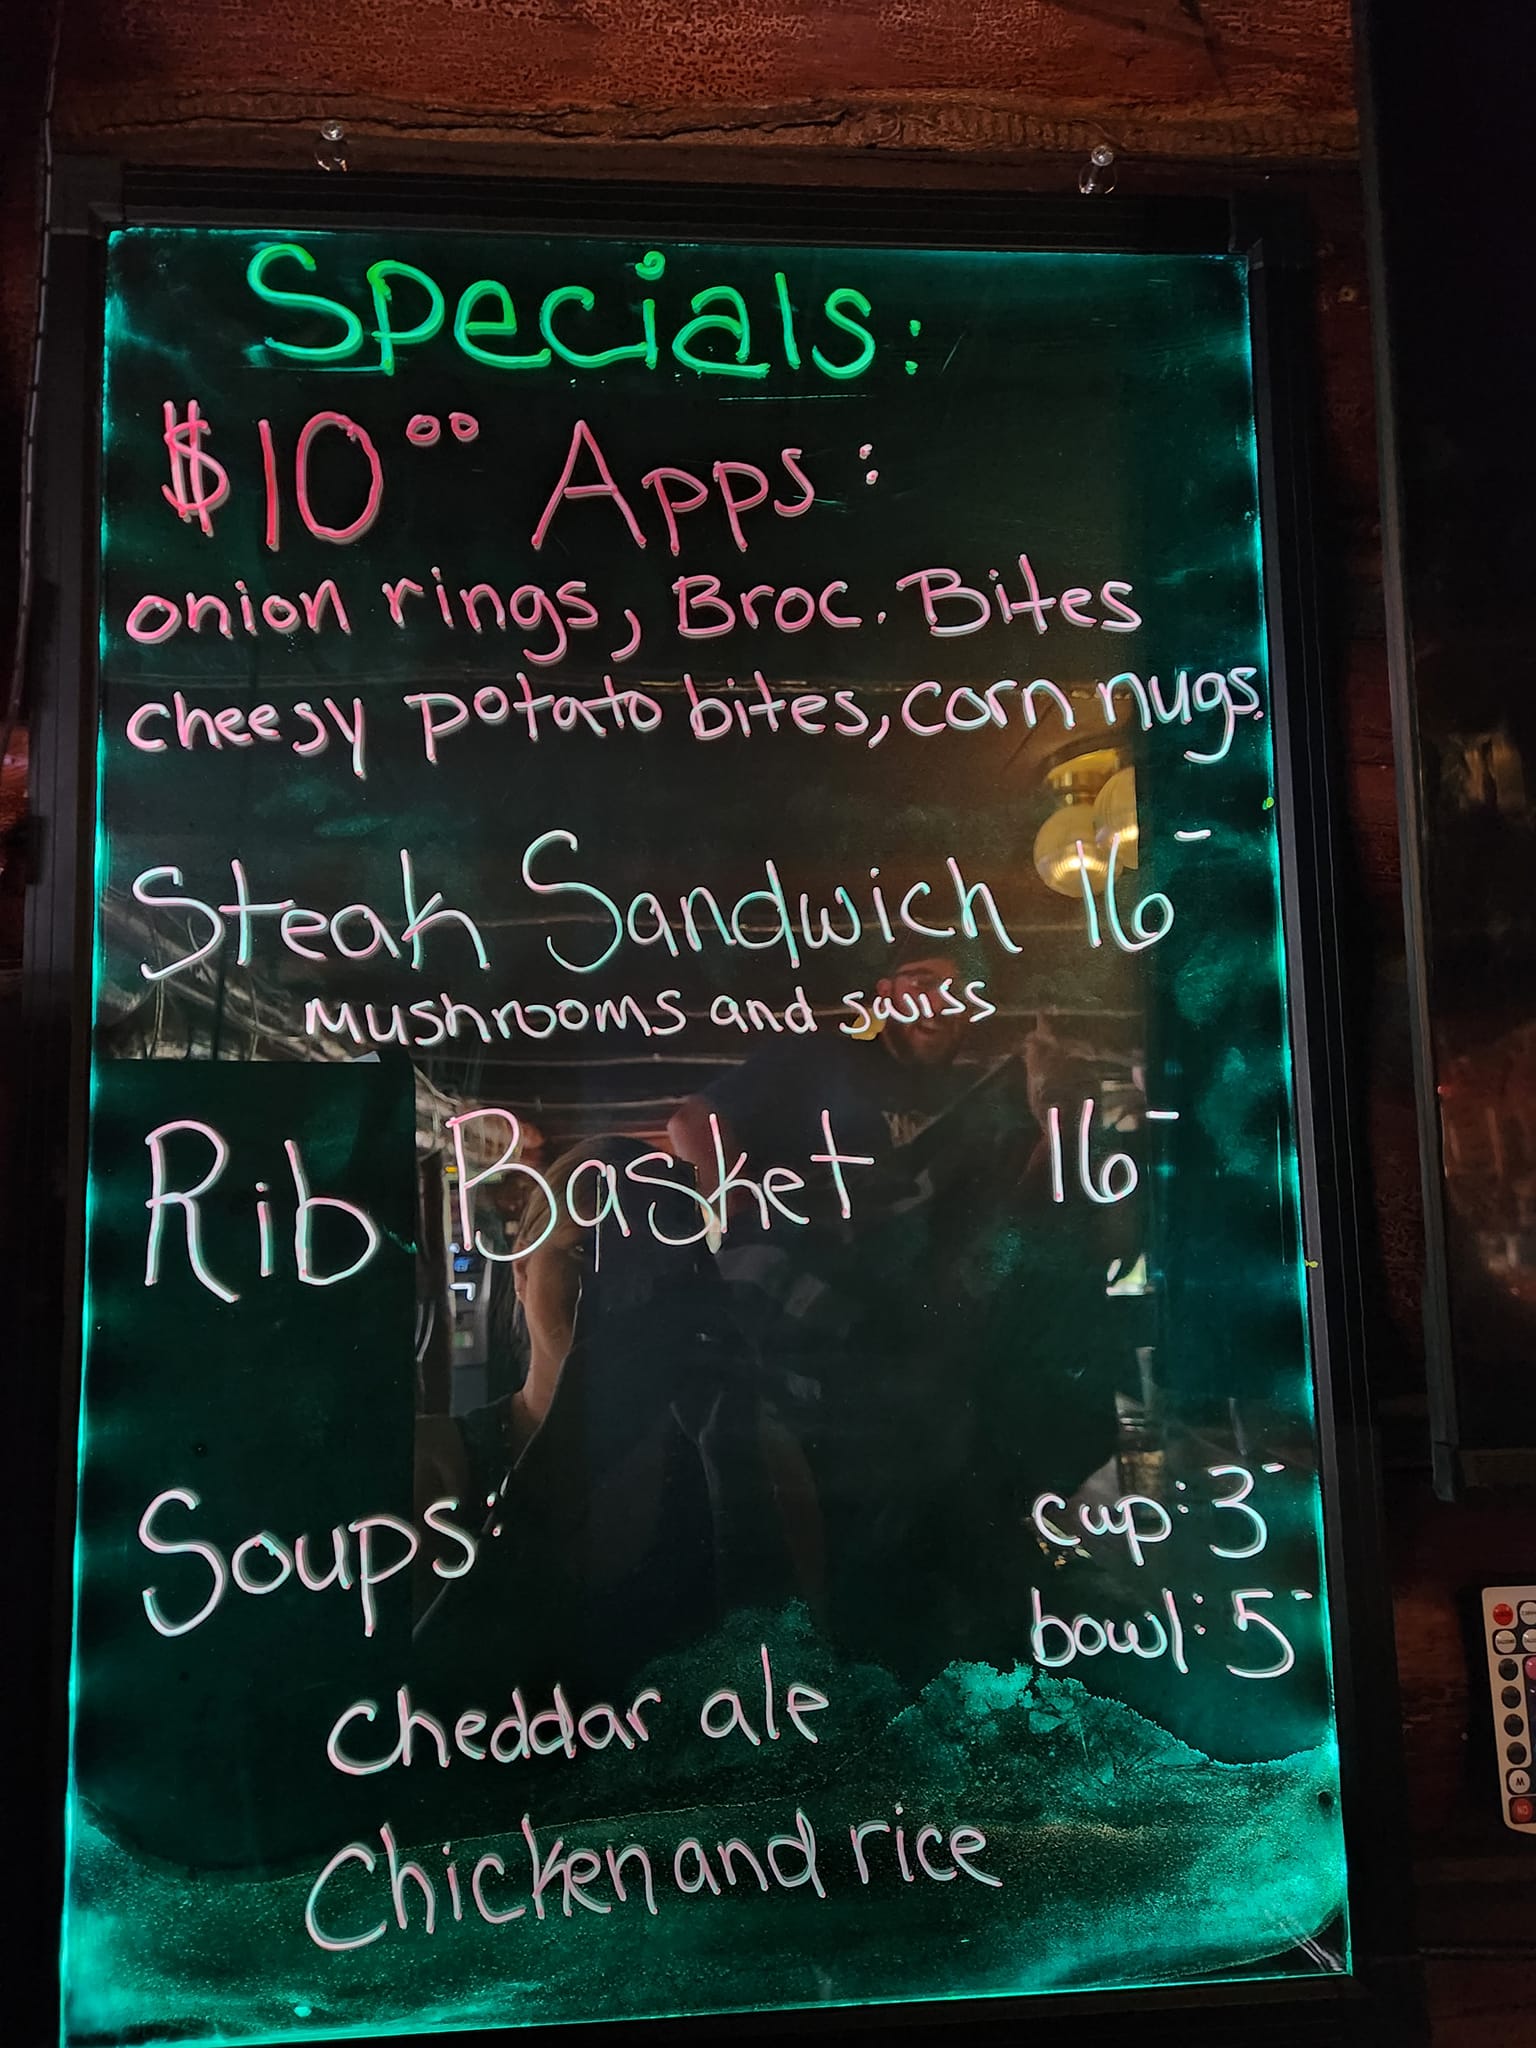 Specials:
$10.00 Apps:
onion rings, Broc. Bites
cheesy potato bites, corn nugs.
Steak Sandwich 16-
mushrooms and swiss
Rib Basket 16-
Soups:
cup: 3-
bowl: 5-
Cheddar ale
Chicken and rice